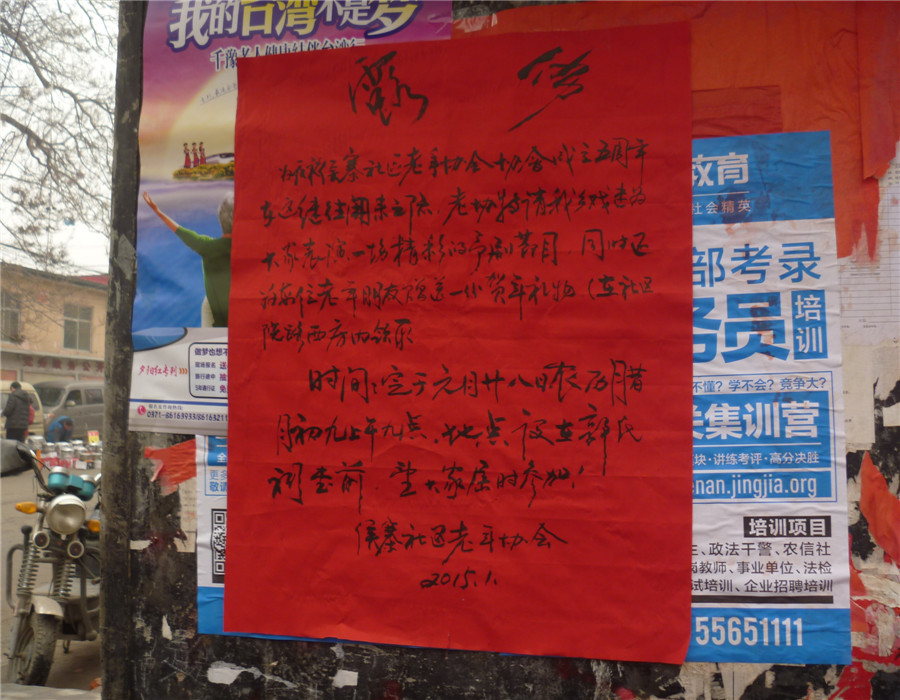 我的台湾不是梦
千豫老人健康结伴台湾行
为庆祝侯寨社区老年协会协会成立五周年
在这继往开来之际，老协特请我乡戏迷为
大家表演一场精彩的豫剧节目，同时还
为每位老年朋友赠送一小贺年礼物（在社区
院西房内领取
时间：定于元月廿八日农历腊
月初九上午九点，地点设在郭氏
祠堂前，望大家届时参加！
侯寨社区老年协会
2015.1.
夕阳红专列
做梦也想不
教育
社会精英
部考录
务员
培训
不懂？学不会？竞争大？
关集训营
块·讲练考评·高分决胜
enan.jingjia.org
培训项目
生、政法干警、农信社
岗教师、事业单位、法检
试培训、企业招聘培训
55651111